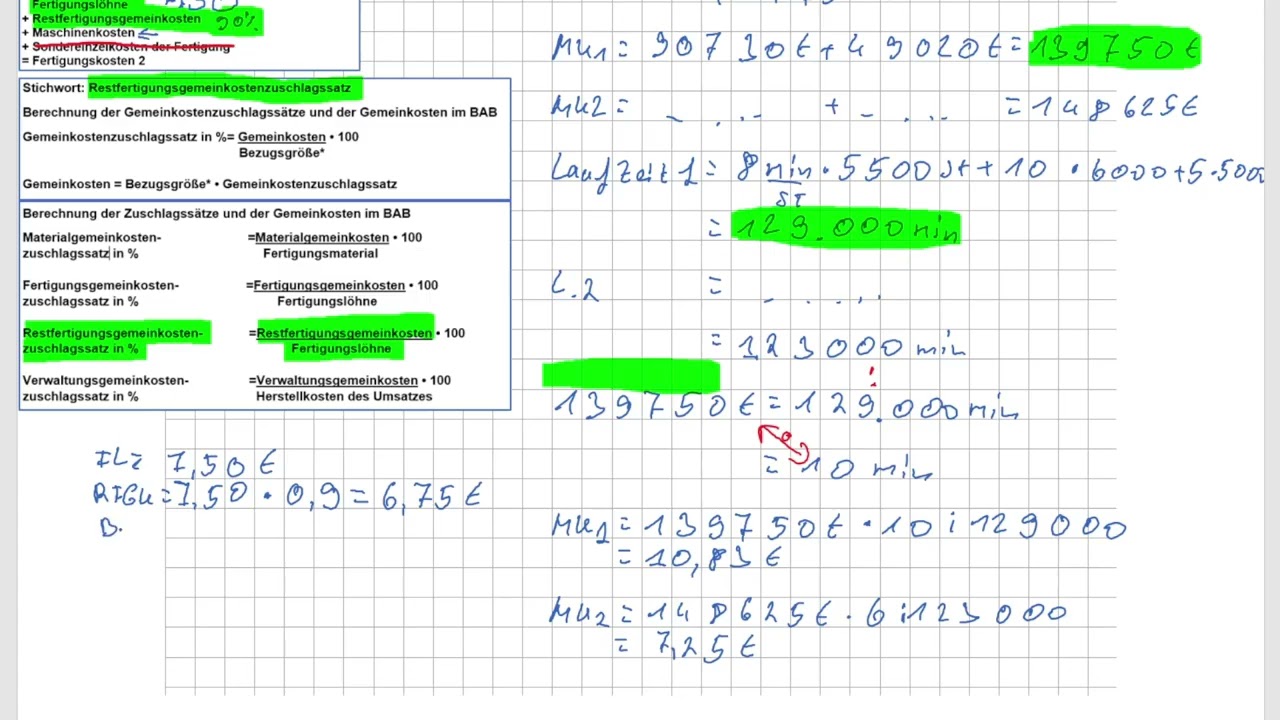 Fertigungslöhne
+ Restfertigungsgemeinkosten 90%
+ Maschinenkosten
+ Sondereinzelkosten der Fertigung
= Fertigungskosten 2
Stichwort: Restfertigungsgemeinkostenzuschlagssatz
Berechnung der Gemeinkostenzuschlagssätze und der Gemeinkosten im BAB
Gemeinkostenzuschlagssatz in %= Gemeinkosten • 100
Bezugsgröße*
Gemeinkosten = Bezugsgröße* • Gemeinkostenzuschlagssatz
Berechnung der Zuschlagssätze und der Gemeinkosten im BAB
Materialgemeinkosten- =Materialgemeinkosten • 100
zuschlagssatz in % Fertigungsmaterial
Fertigungsgemeinkosten- =Fertigungsgemeinkosten • 100
zuschlagssatz in % Fertigungslöhne
Restfertigungsgemeinkosten- =Restfertigungsgemeinkosten • 100
zuschlagssatz in % Fertigungslöhne
Verwaltungsgemeinkosten- =Verwaltungsgemeinkosten • 100
zuschlagssatz in % Herstellkosten des Umsatzes
FL= 7,50 €
RFGK=7,50 • 0,9 = 6,75 €
B.
MK1 = 90730€ + 49020€ = 139750€
MK2 = _ . .. + _ . .. = 148625€
Laufzeit 1 = 8 min • 5500 St + 10 • 6000 + 5·5000
ST
= 129.000 min
L.2 = - . . . .
= 123000 min
139750 € = 129.000 min
= 10 min
MK1 = 139750€ • 10 : 129000
= 10,83 €
MK2 = 148625€ . 6 : 123000
= 7,25 €